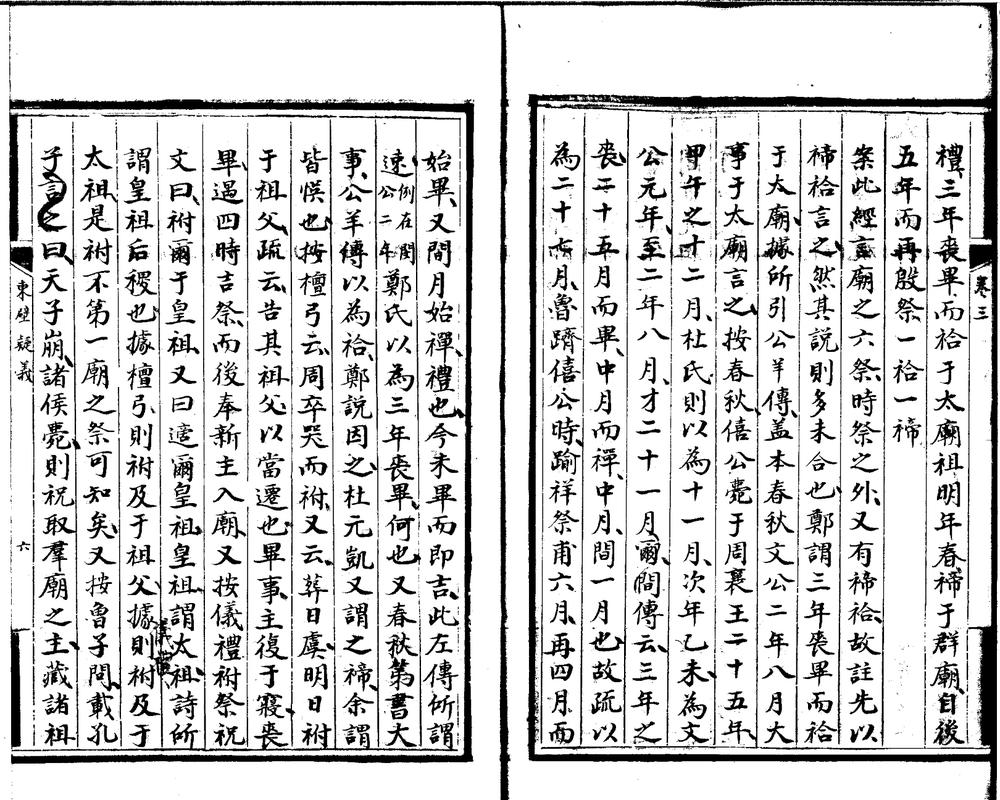 禮、三年喪畢、而祫于太廟祖、明年春、禘于群廟、自後
五年而再殷祭、一祫一禘、
案此經言廟之六祭、時祭之外、又有禘祫、故註先以
禘祫言之、然其說則多未合也、鄭謂三年喪畢而祫
于太廟、據所引公羊傳、盖本春秋文公二年八月大
事于太廟言之、按春秋、僖公薨于周襄王二十五年、
甲午之十二月、杜氏則以為十一月、次年乙未、為文
公元年、至二年八月、才二十一月爾、間傳云、三年之
喪、二十五月而畢、中月而禫、中月、閒一月也、故疏以
為二十七月、魯躋僖公時、踰祥祭甫六月、再四月、而
卷三
始畢、又間月始禫、禮也、今未畢而即吉、此左傳所謂
速、例在閔公二年鄭氏以為三年喪畢、何也、又春秋第書大
事、公羊傳以為祫、鄭說因之、杜元凱又謂之禘、余謂
皆悞也、按檀弓云、周卒哭而祔、又云、葬日虞、明日祔
于祖父、疏云、告其祖父、以當遷也、畢事、主復于寢、喪
畢、遇四時吉祭、而後奉新主入廟、又按儀禮祔祭祝
文曰、祔爾于皇祖、又曰、適爾皇祖、皇祖、謂太祖、詩所
謂皇祖后稷也、據檀弓、則祔及于祖父、據儀禮則祔及于
太祖、是祔不第一廟之祭可知矣、又按魯子問、載孔
子言之曰、天子崩、諸侯薨、則祝取羣廟之主、藏諸祖
東壁疑義
六